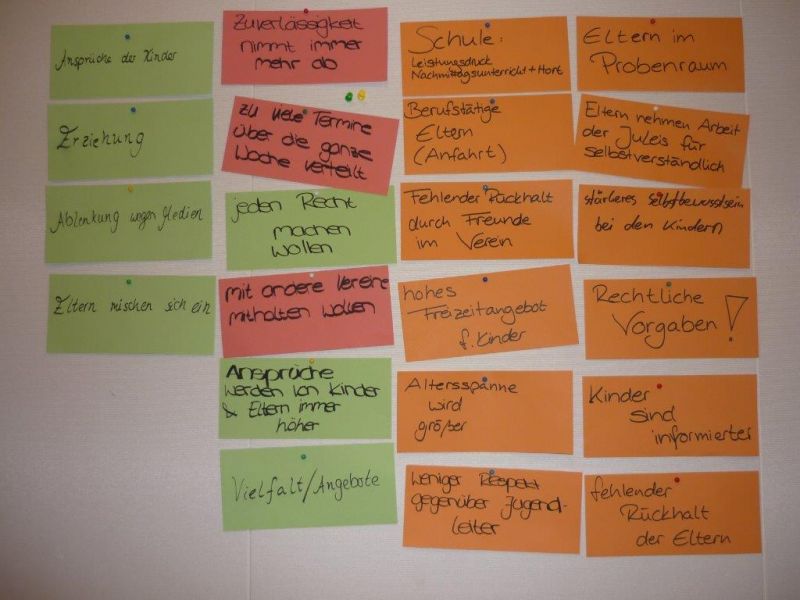 Ansprüche der Kinder
Erziehung
Ablenkung wegen Medien
Eltern mischen sich ein
Zuverlässigkeit
nimmt immer
mehr ab
zu viele Termine
über die ganze
Woche verteilt
jeden Recht
machen
wollen
mit andere Vereine
mithalten wollen
Ansprüche
werden von Kinder
& Eltern immer
höher
Vielfalt/Angebote
Schule:
Leistungsdruck
Nachmittagsunterricht + Hort
Berufstätige
Eltern
(Anfahrt)
Fehlender Rückhalt
durch Freunde
im Verein
hohes
Freizeitangebot
f. Kinder
Altersspanne
wird
größer
weniger Respekt
gegenüber Jugend-
leiter
Eltern im
Probenraum
Eltern nehmen Arbeit
der Juleis für
selbstverständlich
stärkeres Selbstbewusstsein
bei den Kindern
Rechtliche
Vorgaben!
Kinder
sind
informierter
fehlender
Rückhalt
der Eltern